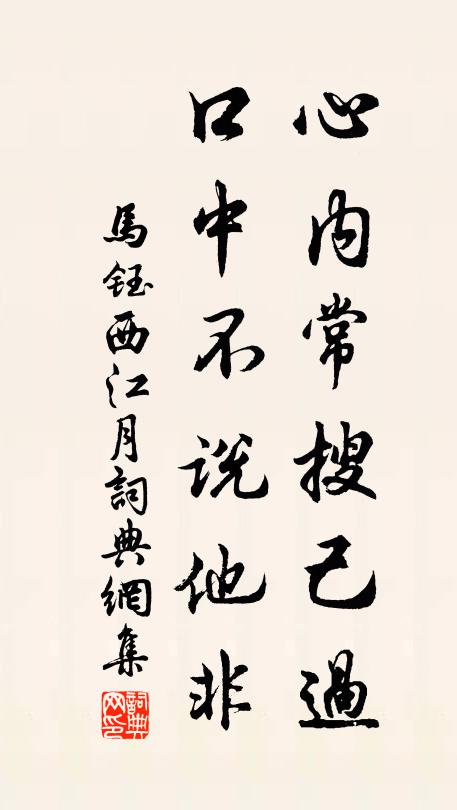 心内常搜己過
口中不説他非
馬鈺西江月詞典網集
詞典网印